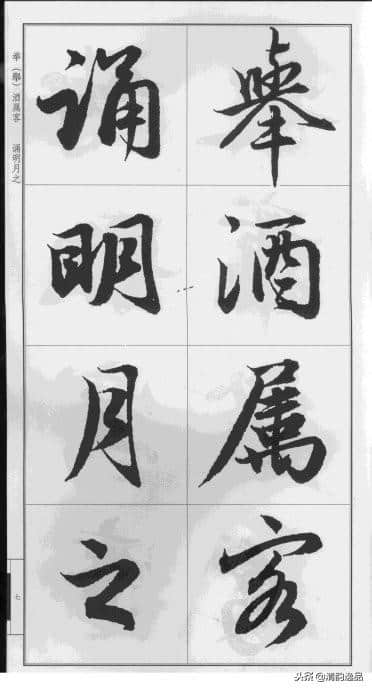 舉酒属客
诵明月之
举（舉）酒属客 诵明月之
七
头条@清韵逸品